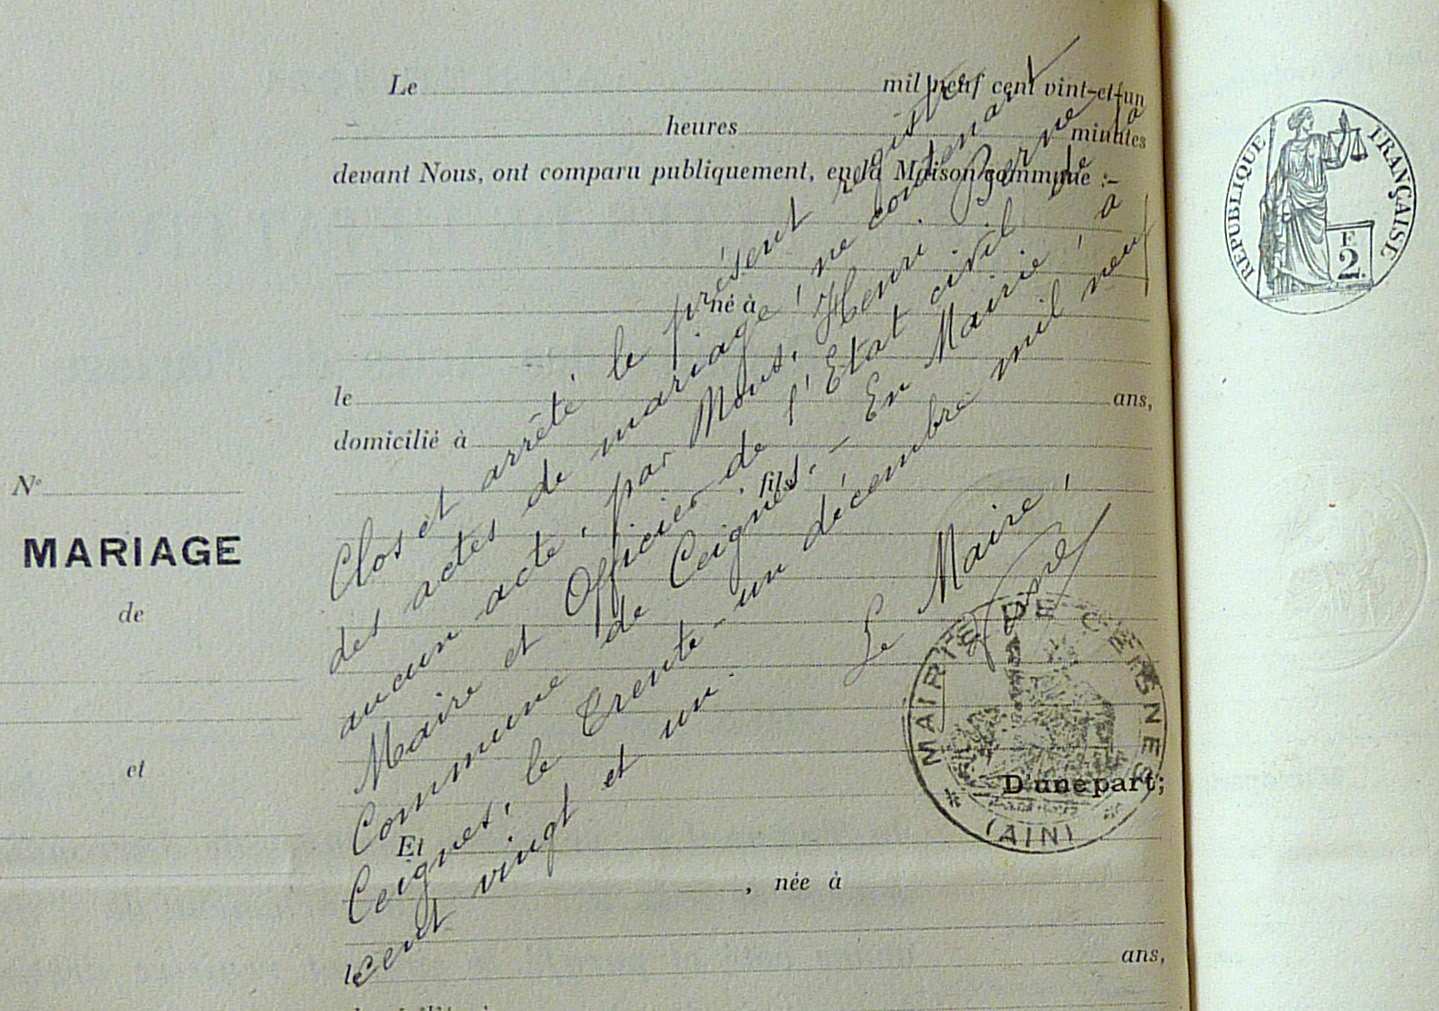 Le mil neuf cent vint-et-un
heures minutes
devant Nous, ont comparu publiquement, en la Maison commune :-
né à
le ans,
domicilié à
fils
N°
MARIAGE
de
et
D'une part;
Et
, née à
le ans,
Clos et arrêté le présent registre
des actes de mariage, ne contenant
aucun acte, par Nous, Henri Berne
Maire et Officier de l'Etat civil de la
Commune de Ceignes. - En Mairie, à
Ceignes, le trente-un décembre mil neuf
cent vingt et un.
Le Maire,
MAIRIE DE CEIGNES
(AIN)
REPUBLIQUE FRANÇAISE
F
2